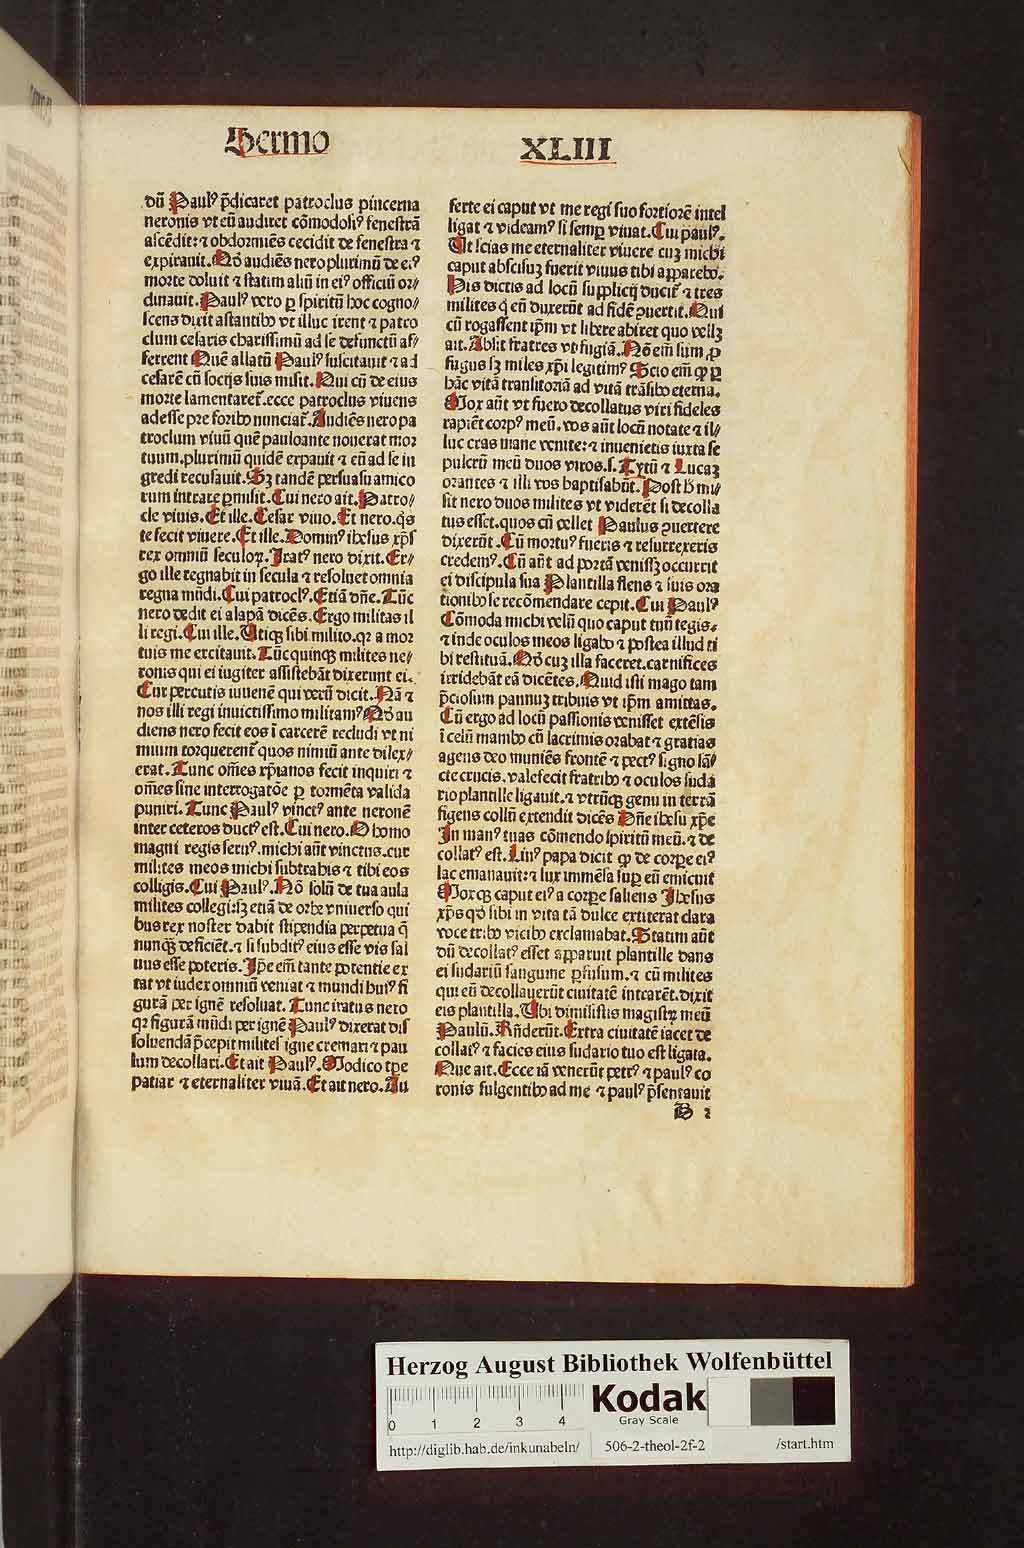 Sermo XLIII
dū Paulꝰ p̄dicaret patroclus pincerna
neronis vt eū audiret cōmodoliꝰ fenestrā
ascēdit: ⁊ obdormiēs cecidit de fenestra ⁊
expirauit. Qḋ audiēs nero plurimū de eiꝰ
morte doluit ⁊ statim aliū in eiꝰ officiū or//
dinauit. Paulꝰ vero ꝑ spiritū hoc cogno//
scens dixit astantibꝰ vt illuc irent ⁊ patro
clum cesaris charissimū ad se defunctū af//
ferrent Quē allatū Paulꝰ suscitauit ⁊ ad
cesarē cū socijs suis misit. Qui cū de eius
morte lamentaret᷑. ecce patroclus viuens
adesse pre foribꝰ nunciat᷑. Audiēs nero pa
troclum viuū quē pauloante nouerat mor
tuum. plurimū quidē expauit ⁊ eū ad se in
gredi recusauit. Sꝫ tandē persuasu amico
rum intrare ꝑmisit. Cui nero ait. Patro//
cle viuis. Et ille. Cesar viuo. Et nero. q̇s
te fecit viuere. Et ille. Dominꝰ ihesus xp̄s
rex omniū seculoꝝ. Iratꝰ nero dixit. Er//
go ille regnabit in secula ⁊ resoluet omnia
regna mūdi. Cui patroclꝰ. Etiā dn̄e. Tūc
nero dedit ei alapā dicēs. Ergo militas il
li regi. Cui ille. Utiqꝫ sibi milito. qꝛ a mor
tuis me excitauit. Tūc quinqꝫ milites ne//
ronis qui ei iugiter assistebāt dixerunt ei.
Cur percutis iuuenē qui verū dicit. Nā ⁊
nos illi regi inuictissimo militamꝰ Qḋ au
diens nero fecit eos ī carcerē recludi vt ni
mium torquerent᷑ quos nimiū ante dilex//
erat. Tunc om̄es xp̄ianos fecit inquiri ⁊
om̄es sine interrogatōe ꝑ tormēta valida
puniri. Tunc Paulꝰ vinctꝰ ante neronē
inter ceteros ductꝰ est. Cui nero. O homo
magni regis seruꝰ. michi aūt vinctus. cur
milites meos michi subtrahis ⁊ tibi eos
colligis. Cui Paulꝰ. Nō solū de tua aula
milites collegi: sꝫ etiā de orbe vniuerso qui
bus rex noster dabit stipendia perpetua q̄
nunqꝫ deficiēt. ⁊ si subditꝰ eius esse vis sal
uus esse poteris. Ip̄e em̄ tante potentie ex
tat vt iudex omniū veniat ⁊ mundi huiꝰ fi
gurā per ignē resoluat. Tunc iratus nero
qꝛ figurā mūdi per ignē Paulꝰ dixerat dis
soluendā p̄cepit militesˢ igne cremari ⁊ pau
lum decollari. Et ait Paulꝰ. Modico tp̄e
patiar ⁊ eternaliter viuā. Et ait nero. Au
ferte ei caput vt me regi suo fortiorē intel
ligat ⁊ videamꝰ si semꝑ viuat. Cui paulꝰ.
Ut scias me eternaliter viuere cuꝫ michi
caput abscisuꝫ fuerit viuus tibi apparebo.
His dictis ad locū supplicij ducit᷑ ⁊ tres
milites q̇ eū duxerūt ad fidē ꝯuertit. Qui
cū rogassent ip̄m vt libere abiret quo vellꝫ
ait. Absit fratres vt fugiā. Nō em̄ sum ꝓ
fugus sꝫ miles xp̄i legitimꝰ Scio em̄ ꝙ ꝑ
hāc vitā transitoriā ad vitā trāsibo eternā.
Mox aūt vt fuero decollatus viri fideles
rapiēt corpꝰ meū. vos aūt locū notate ⁊ il//
luc cras mane venite: ⁊ inuenietis iuxta se
pulcrū meū duos viros. s. Tytū ⁊ Lucaꝫ
orantes ⁊ illi vos baptisabūt. Post h̄ mi//
sit nero duos milites vt viderēt si decolla
tus esset. quos cū vellet Paulus ꝯuertere
dixerūt. Cū mortuꝰ fueris ⁊ resurrexeris
credemꝰ. Cū aūt ad portā venissꝫ occurrit
ei discipula sua Plantilla flens ⁊ suis ora
tionibꝰ se recōmendare cepit. Cui Paulꝰ
Cōmoda michi velū quo caput tuū tegis.
⁊ inde oculos meos ligabo ⁊ postea illud ti
bi restituā. Qḋ cuꝫ illa faceret. carnifices
irridebāt eā dicētes. Quid isti mago tam
p̄ciosum pannuꝫ tribuis vt ip̄m amittas.
Cū ergo ad locū passionis venisset extēsis
ī celū manibꝰ cū lacrimis orabat ⁊ gratias
agens deo muniēs frontē ⁊ pectꝰ signo sā//
cte crucis. valefecit fratribꝰ ⁊ oculos suda
rio plantille ligauit. ⁊ vtrūqꝫ genu in terrā
figens collū extendit dicēs Dn̄e ihesu xp̄e
In manꝰ tuas cōmendo spiritū meū. ⁊ de
collatꝰ est. Linꝰ papa dicit ꝙ de corꝑe eiꝰ
lac emanauit: ⁊ lux immēsa suꝑ eū emicuit
Moxqꝫ caput eiꝰ a corꝑe saliens Ihesus
xp̄s qḋ sibi in vita tā dulce extiterat clara
voce tribꝰ vicibꝰ exclamabat. Statim aūt
dū decollatꝰ esset apparuit plantille dans
ei sudariū sanguine ꝑfusum. ⁊ cū milites
qui eū decollauerūt ciuitatē intrarēt. dixit
eis plantilla. Ubi dimisistis magistꝝ meū
Paulū. Rn̄derūt. Extra ciuitatē iacet de
collatꝰ ⁊ facies eius sudario tuo est ligata.
Que ait. Ecce iā venerūt petrꝰ ⁊ paulꝰ co
ronis fulgentibꝰ ad me ⁊ paulꝰ p̄sentauit
B 2
Herzog August Bibliothek Wolfenbüttel
0 1 2 3 4
Kodak
Gray Scale
http://diglib.hab.de/inkunabeln/ 506-2-theol-2f-2 /start.htm